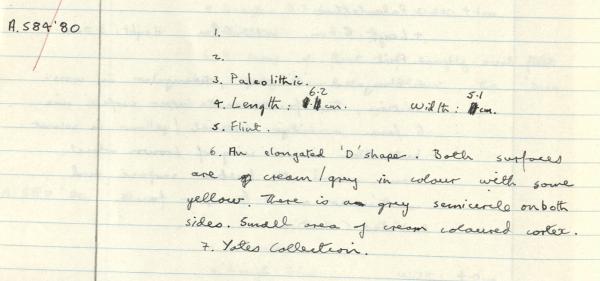 A.584'80
1.
2.
3. Paleolithic.
4. Length: 6.2 cm. Width: 5.1 cm.
5. Flint.
6. An elongated 'D' shape. Both surfaces
are cream/grey in colour with some
yellow. There is a grey semicircle on both
sides. Small area of cream coloured cortex.
7. Yates Collection.